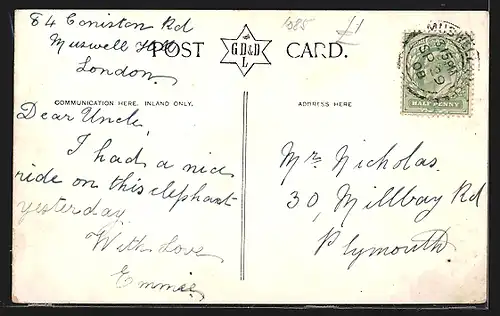 84 Coniston Rd
Muswell Hill
London.
POST CARD.
GD&D
L
1085 £1
COMMUNICATION HERE, INLAND ONLY.
ADDRESS HERE
Dear Uncle,
I had a nice
ride on this elephant
yesterday.
With Love
Emmie
Mr Nicholas.
30, Millbay Rd
Plymouth
HALF PENNY
MUSWELL
SP 29
08